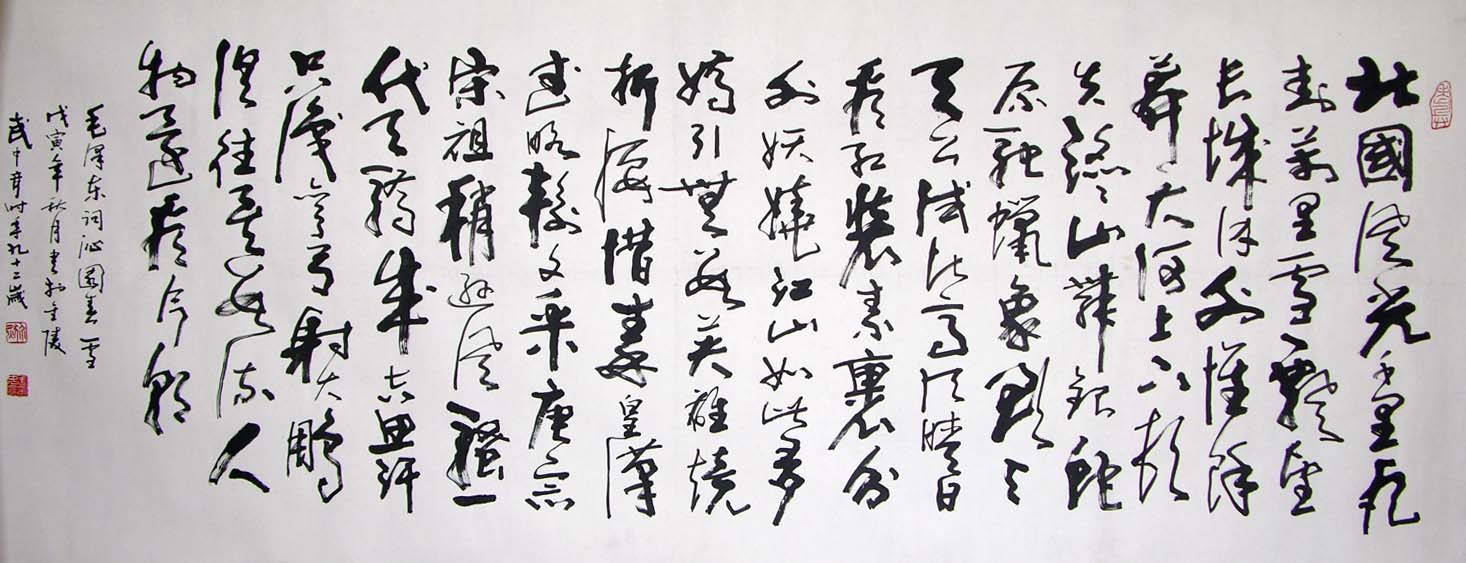 北國风光千里冰
封萬里雪飘望
长城内外惟餘
莽莽大河上下顿
失滔滔山舞銀蛇
原驰蠟象欲与
天公试比高须晴日
看红裝素裹分
外妖娆江山如此多
嬌引無數英雄競
折腰惜秦皇漢
武略輸文采唐宗
宋祖稍遜风騷一
代天驕成吉思汗
只識弯弓射大鵰
俱往矣數风流人
物还看今朝
毛澤东词沁園春雪
戊寅年秋月書於金陵
武中奇时年九十二歲